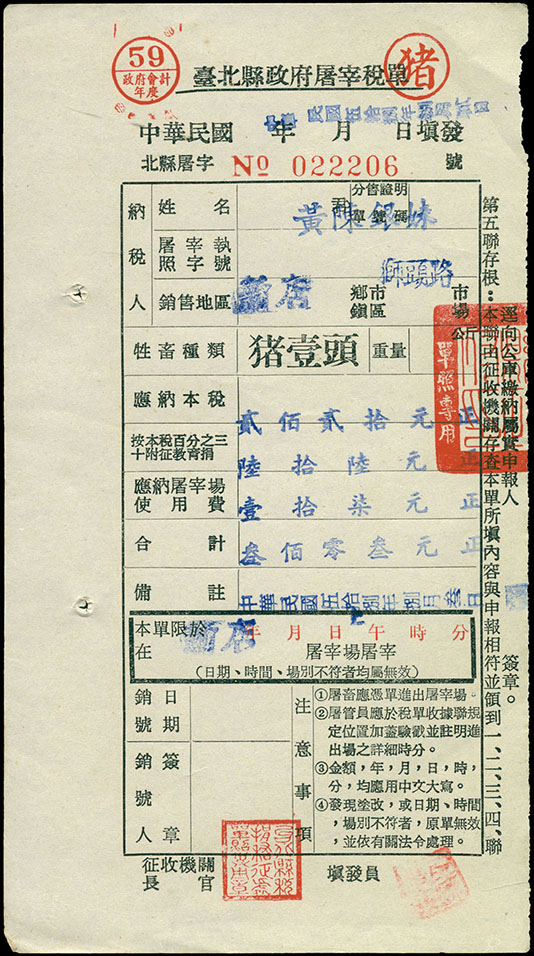 59
政府會計
年度
臺北縣政府屠宰稅單
猪
中華民國 年 月 日填發
北縣屠字 № 022206 號
納稅人
姓名
黃陳銀妹
君
分售證明
單號碼
屠宰執
照字號
獅頭路
銷售地區
新店
鄉市
鎮區
市場
牲畜種類
猪壹頭
重量
公斤
應納本稅
貳佰貳拾元正
按本稅百分之三
十附征教育捐
陸拾陸元正
應納屠宰場
使用費
壹拾柒元正
合計
叁佰零叁元正
備註
中華民國伍拾捌年捌月叁日
本單限於 年 月 日 午 時 分
在 新店 屠宰場屠宰
(日期、時間、場別不符者均屬無效)
銷號日期
銷號人簽章
注意事項
①屠畜應憑單進出屠宰場。
②屠管員應於稅單收據聯規
定位置加蓋驗戳並註明進
出場之詳細時分。
③金額，年，月，日，時，
分，均應用中文大寫。
④發現塗改，或日期、時間
，場別不符者，原單無效
，並依有關法令處理。
征收機關
長官
填發員
第五聯存根：本聯由征收機關存查
逕向公庫繳納屬實申報人 簽章。
本單所填內容與申報相符並領到一、二、三、四、聯
單照專用